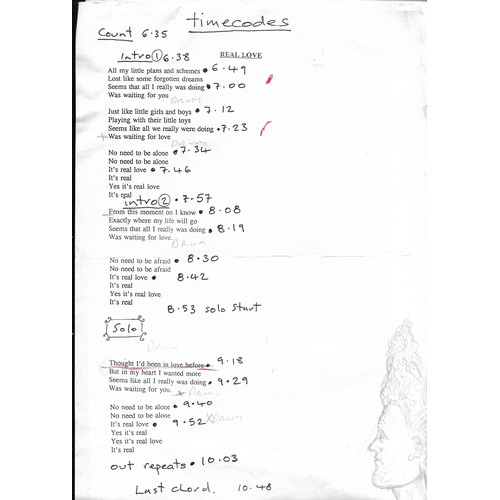 timecodes
Count 6.35
Intro ① 6.38
REAL LOVE
All my little plans and schemes • 6.49
Lost like some forgotten dreams
Seems that all I really was doing • 7.00
Was waiting for you
Drum
Just like little girls and boys • 7.12
Playing with their little toys
Seems like all we really were doing • 7.23
+ Was waiting for love
Drum
No need to be alone • 7.34
No need to be alone
It's real love • 7.46
It's real
Yes it's real love
It's real
intro ② • 7.57
From this moment on I know • 8.08
Exactly where my life will go
Seems that all I really was doing • 8.19
Was waiting for love
Drum
No need to be afraid • 8.30
No need to be afraid
It's real love • 8.42
It's real
Yes it's real love
It's real
8.53 solo start
Solo
Drum
Thought I'd been in love before • 9.18
But in my heart I wanted more
Seems like all I really was doing • 9.29
Was waiting for you
x Drum
No need to be alone • 9.40
No need to be alone
It's real love • 9.52 x Drum
It's real
Yes it's real love
It's real
out repeats • 10.03
Last chord. 10.48